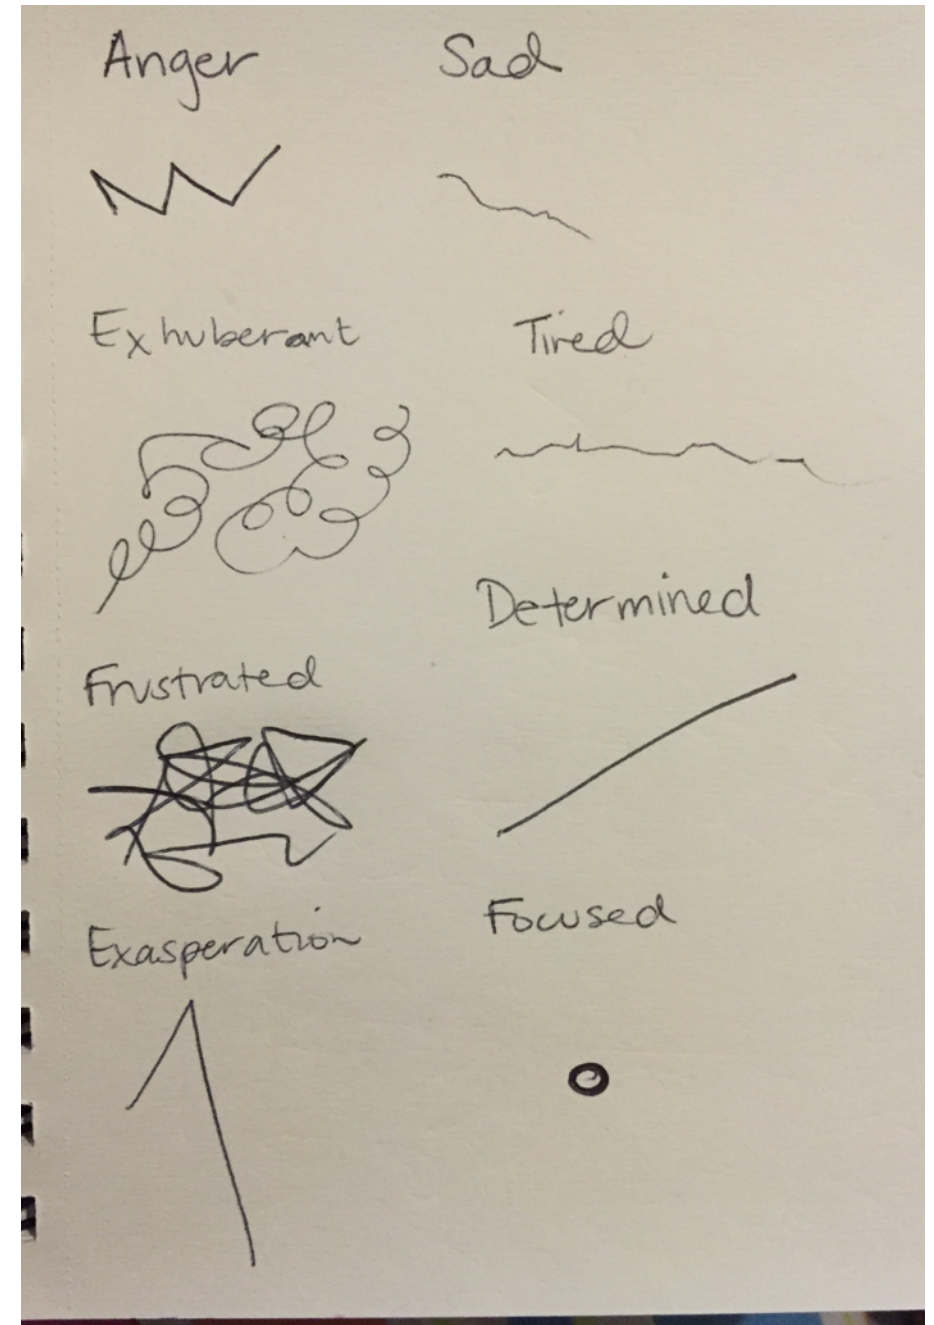 Anger
Sad
Exhuberant
Tired
Determined
Frustrated
Focused
Exasperation